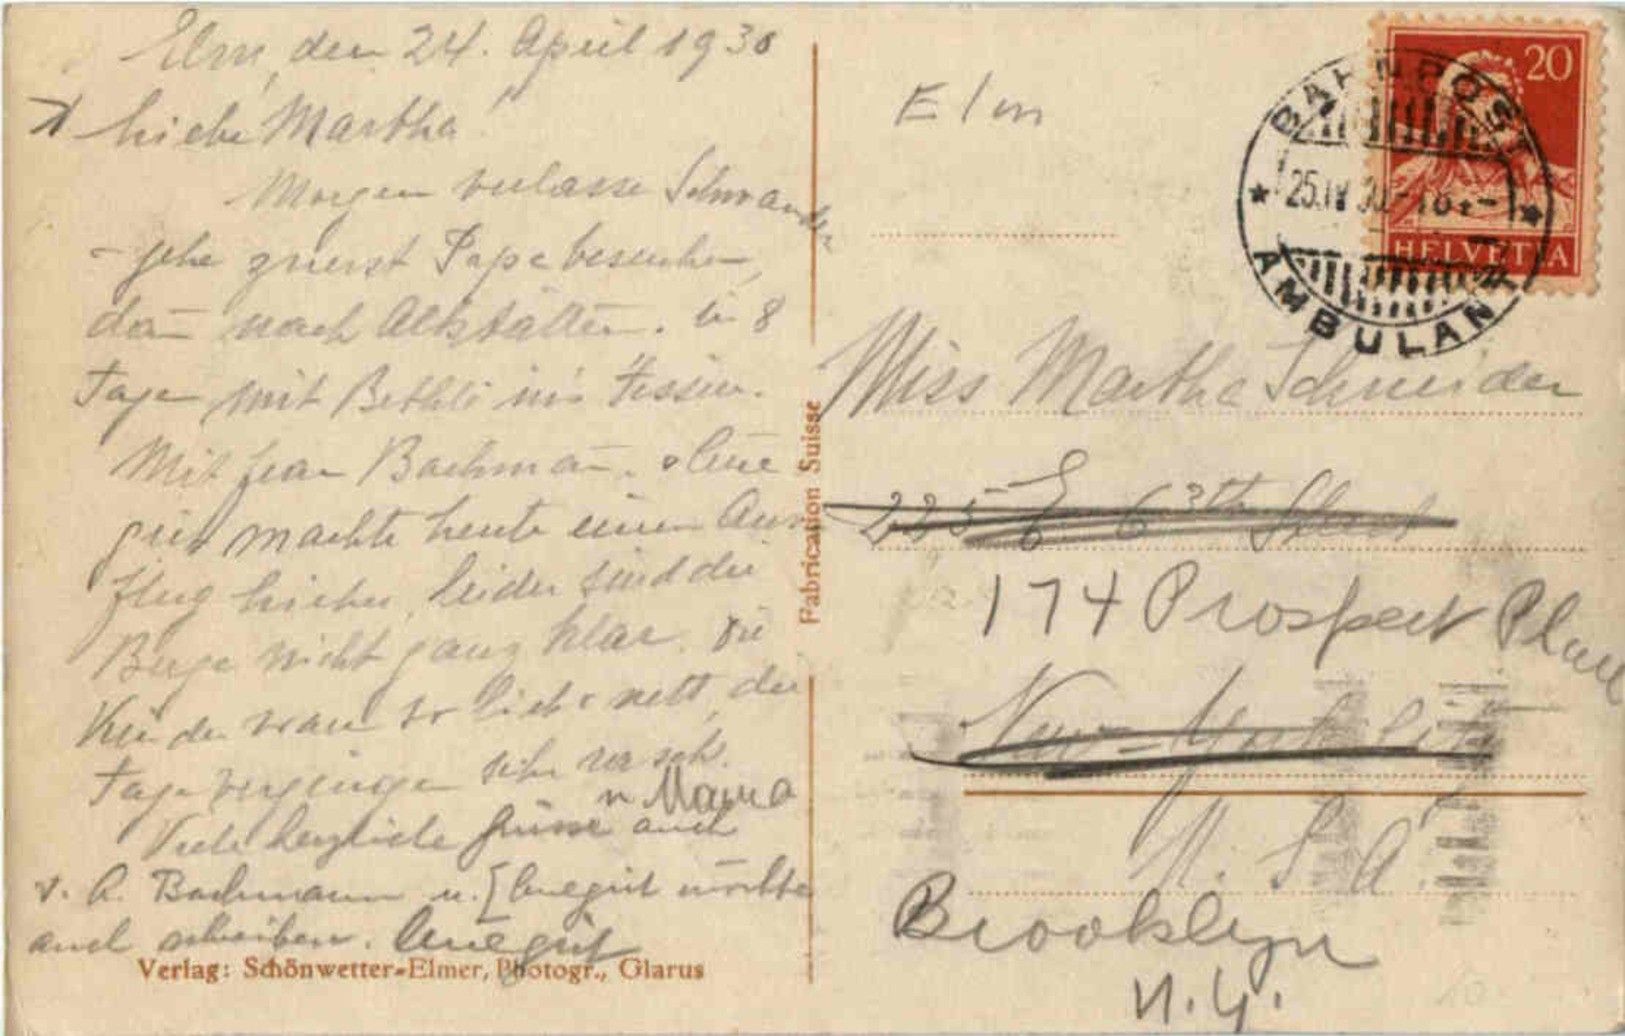 Elm, den 24. April 1930
Liebe Martha!
Morgen verlasse Schwanden
- gehe zuerst Papa besuchen,
dañ nach Altstätten. In 8
Tagen mit Bethli ins Tessin.
Mit Frau Bachmañ
machte heute einen Aus
flug hieher, leider sind die
Berge nicht ganz klar. Die
Kinder waren so lieb & nett, die
Tage vergingen sehr rasch.
u Mama
Viele herzliche Grüsse auch
v. A. Bachmann u. [Annegrit möchte
auch schreiben. Annegrit
Verlag: Schönwetter-Elmer, Photogr., Glarus
Fabrication Suisse
Elm
BAHNPOST
25.IV 30.
AMBULANT
20
HELVETIA
Miss Martha Schneider
225 E 63th Street
174 Prospect Place
New-York City
U. S. A.
Brooklyn
N.Y.